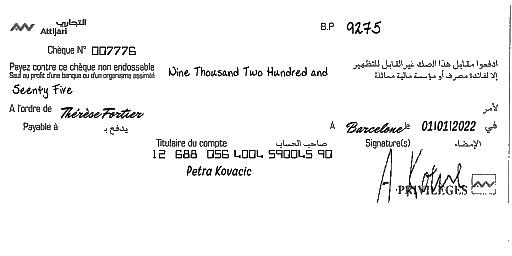 التجاري
Attijari
B.P 9275
Chèque N° 007776
Payez contre ce chèque non endossable
Saul au profit d'une banque ou d'un organisme assimilé
Nine Thousand Two Hundred and
ادفعوا مقابل هذا الصك غير القابل للتظهير
إلا لفائدة مصرف أو مؤسسة مالية مماثلة
Seenty Five
A l'ordre de Thérèse Fortier
لأمر
Payable à
يدفع بـ
A Barcelone le 01/01/2022 في
Titulaire du compte صاحب الحساب
Signature(s) الإمضاء
12 688 056 4004 590045 90
Petra Kovacic
PRIVILEGES